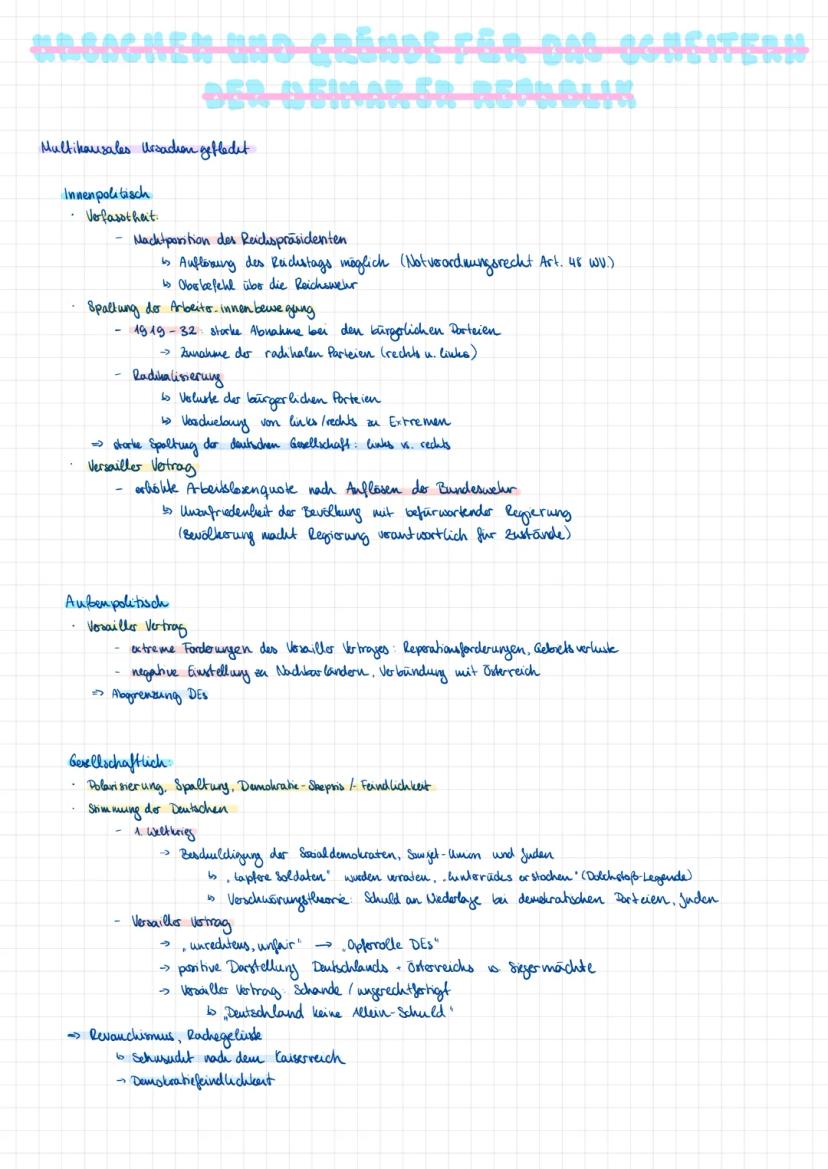 URSACHEN UND GRÜNDE FÜR DAS SCHEITERN
DER WEIMARER REPUBLIK
Multikausales Ursachengeflecht
Innenpolitisch
· Verfasstheit:
- Machtposition des Reichspräsidenten
↳ Auflösung des Reichstags möglich (Notverordnungsrecht Art. 48 WV.)
↳ Oberbefehl über die Reichswehr
· Spaltung der Arbeiter-innenbewegung
- 1919-32: starke Abnahme bei den bürgerlichen Parteien
→ Zunahme der radikalen Parteien (rechts u. links)
- Radikalisierung
↳ Verluste der bürgerlichen Parteien
↳ Verschiebung von links/rechts zu Extremen
⇒ starke Spaltung der deutschen Gesellschaft: links vs. rechts
· Versailler Vertrag
- erhöhte Arbeitslosenquote nach Auflösen der Bundeswehr
↳ Unzufriedenheit der Bevölkung mit befürwortender Regierung
(Bevölkerung macht Regierung verantwortlich für Zustände)
Außenpolitisch
· Versailler Vertrag
- extreme Forderungen des Versailler Vertrages: Reperationsforderungen, Gebietsverluste
- negative Einstellung zu Nachbarländern, Verbündung mit Österreich
⇒ Abgrenzung DEs
Gesellschaftlich:
· Polarisierung, Spaltung, Demokratie-Skepsis /-Feindlichkeit
· Stimmung der Deutschen
- 1. Weltkrieg
→ Beschuldigung der Sozialdemokraten, Sowjet-Union und Juden
↳ "tapfere Soldaten" wurden verraten, "hinterrücks erstochen" (Dolchstoß-Legende)
↳ Verschwörungstheorie: Schuld an Niederlage bei demokratischen Parteien, Juden
- Versailler Vertrag
→ "unrechtens, unfair" → "Opferrolle DEs"
→ positive Darstellung Deutschlands + Österreichs vs. Siegermächte
→ Versailler Vertrag: Schande / ungerechtfertigt
↳ "Deutschland keine Allein-Schuld"
⇒ Revanchismus, Rachegelüste
↳ Sehnsucht nach dem Kaiserreich
→ Demokratiefeindlichkeit